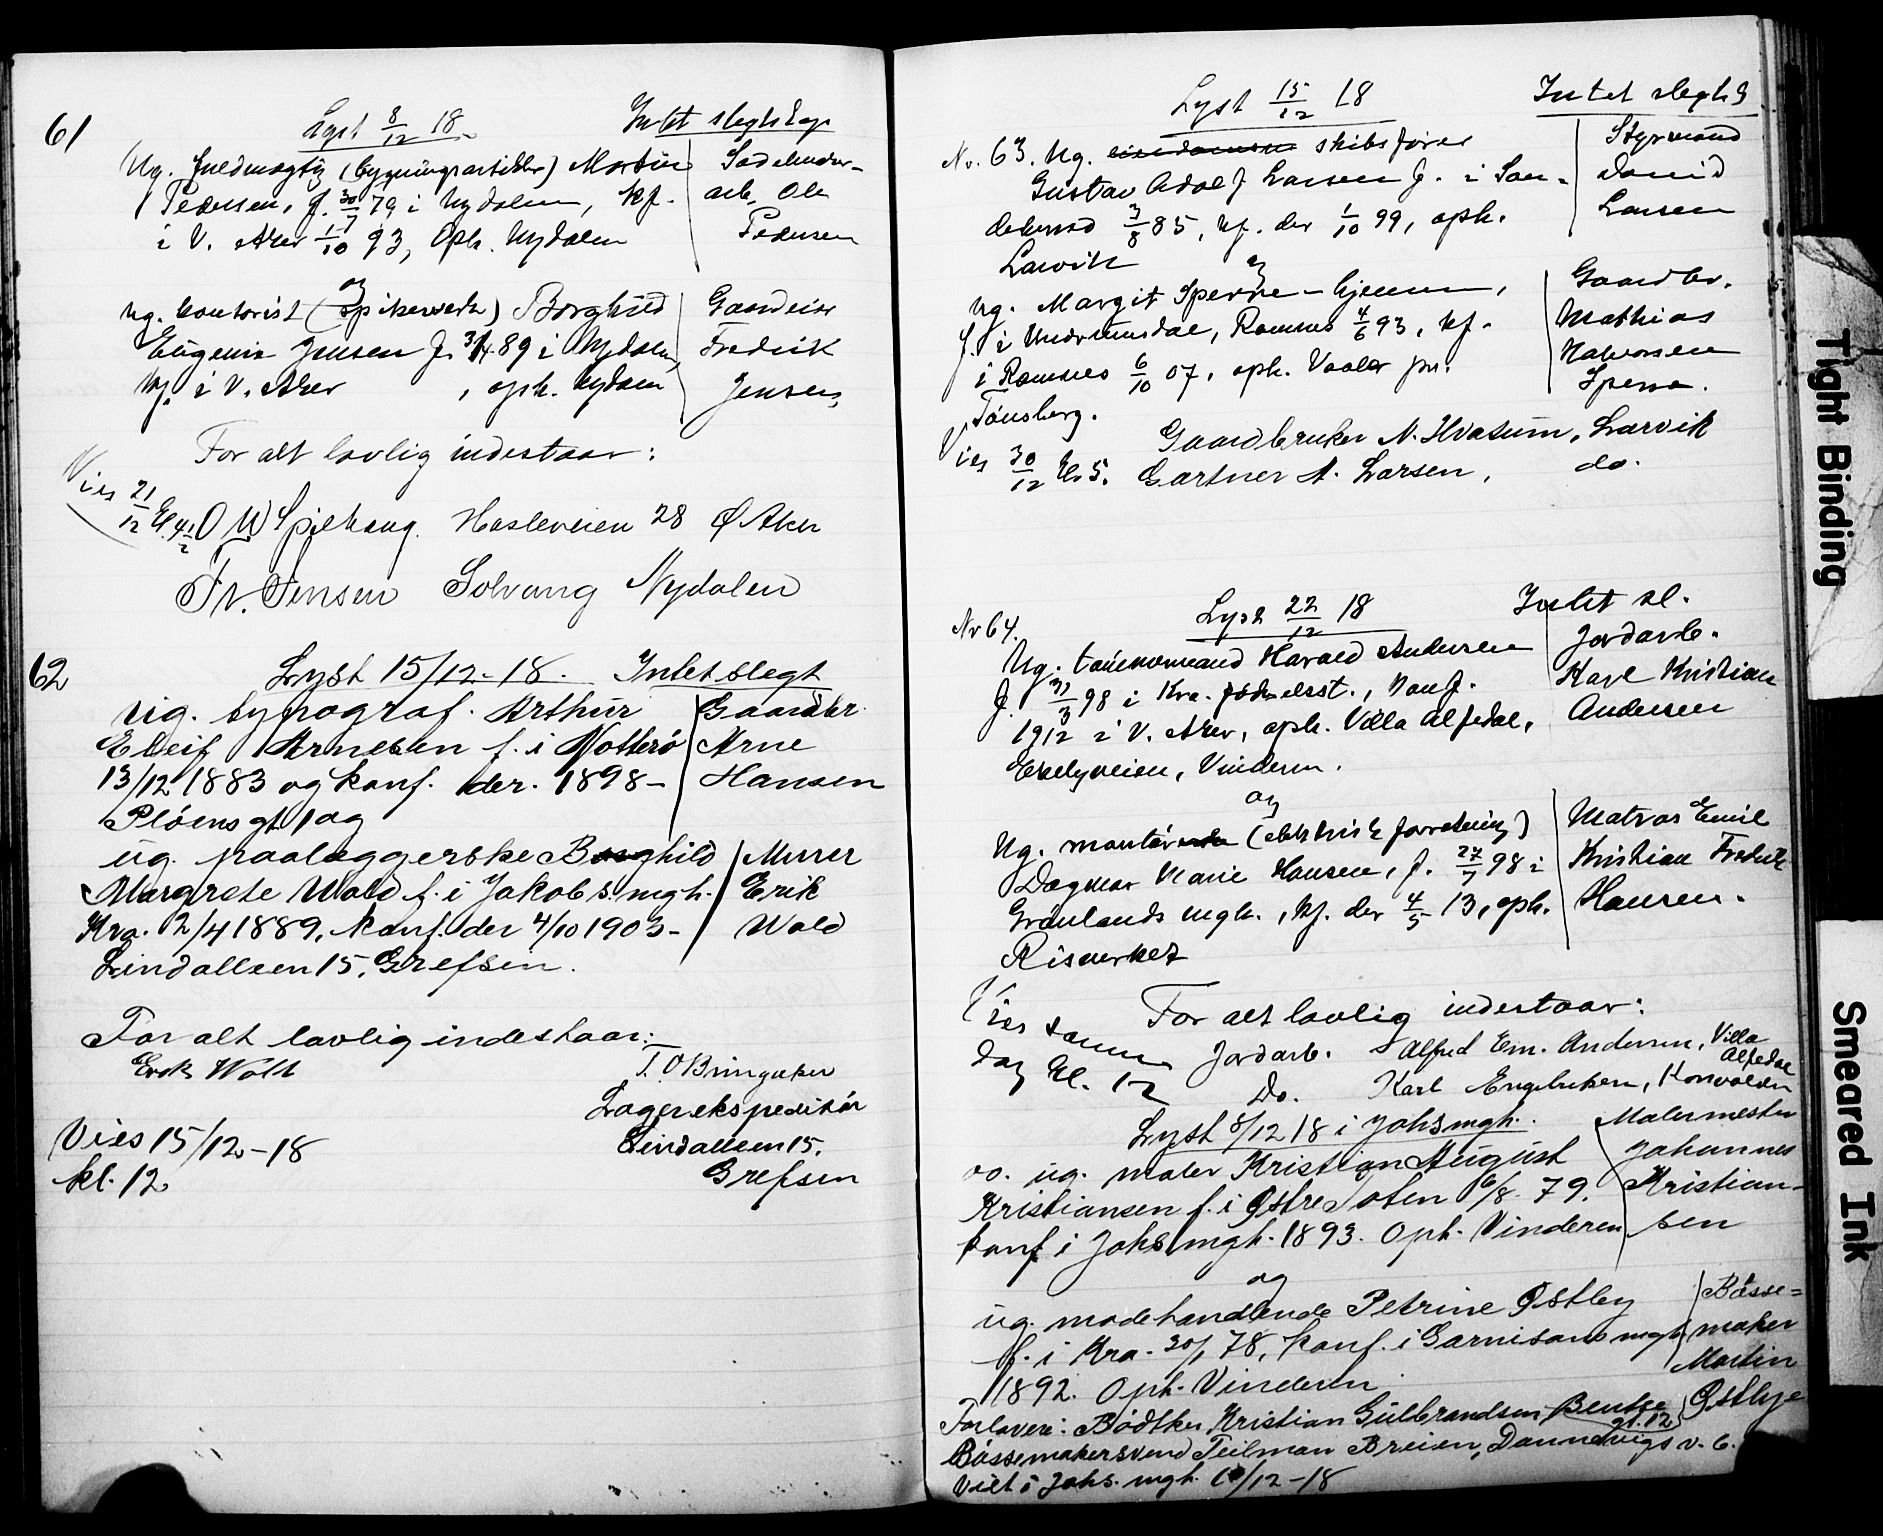 61
Lyst 8/12 18. Intet slegtskap
Ug. fuldmægtig (bygningsartikler) Martin
Pedersen, f. 30/7 79 i Nydalen, kf.
i V. Aker 1/10 93, Oph. Nydalen
arb. Ole
Pedersen
og
Ug. kontorist (Spikerverk) Borghild
Eugenie Jensen f. 3/4 89 i Nydalen,
kf. i V. Aker , oph. Nydalen
Gaardeier
Fredrik
Jensen
For alt lovlig indestaar:
Vies 21/12 kl. 4 1/2
O W Spilhaug Hasleveien 28 Ø Aker
Fr. Jensen Solvang Nydalen
62
Lyst 15/12-18. Intet slegt
ug. typograf. Arthur
Eleif Arnesen f. i Nøtterø
13/12 1883 og konf. der. 1898-
Pløensgt 1 og
Gaardbr.
Arne
Hansen
ug. paalæggerske Borghild
Margrete Wold f. i Jakobs mgh.
Kra. 2/4 1889. konf. der 4/10 1903-
Lindalleen 15. Grefsen.
Murer
Erik
Wold
For alt lovlig indestaar:
Erik Wold
Lagerekspeditør
Lindalleen 15.
Grefsen
Vies 15/12-18
kl. 12
Lyst 15/12 18 Intet slegts
Nr. 63. Ug. skibsfører
Gustav Adolf Larsen f. i San-
dehered 3/8 85, kf. der 1/10 99, oph.
Larvik
Styrmand
David
Larsen
og
Ug. Margit Sperre-
f. i Undrumsdal, Ramnes 4/6 93, kf.
i Ramnes 6/10 07, oph. Vaaler pr.
Tønsberg.
Gaardbr.
Mathias
Halvorsen
Vies 30/12 kl. 5.
Gaardbruker N. Hvatum, Larvik
Gartner A. Larsen, do.
Nr 64.
Lyst 22/12 18 Intet sl.
Ug. Harald Andersen
f. 31/3 98 i Kra. fødselsst., konf.
1912 i V. Aker, oph. Villa Alfedal,
Ekelyveien, Vinderen.
Jordarb.
Karl Kristian
Andersen
og
Ug. montør (elektrisk forretning)
Dagmar Marie Hansen, f. 27/7 98 i
Grønlands mgh., kf. der 4/5 13, oph.
Risverket
Matros Emil
Kristian Fredrik
Hansen.
Vies samme
dag kl. 12
For alt lovlig indestaar:
Jordarb. Alfred Em. Andersen, Villa
Alfedal
Do. Karl Engebretsen,
Lyst 8/12 18 i Johs mgh.
ug. maler Kristian August
Kristiansen f. i Østre Toten 6/8 79.
konf i Johs mgh. 1893. Oph. Vinderen
Malermester
Johannes
Kristian-
sen
og
ug. modehandlende Petrine Østby
f. i Kra. 30/1 78, konf. i Garnisons mgh
1892. Oph. Vinderen
Bøsse=
maker
Martin
Østbye
Forlovere: Bødtker Kristian Gulbrandsen,
Bøssemakersvend Teilman Breien, Dannevigs v. 6.
Viet i Johs. mgh. /12-18
Tight Binding
Smeared Ink